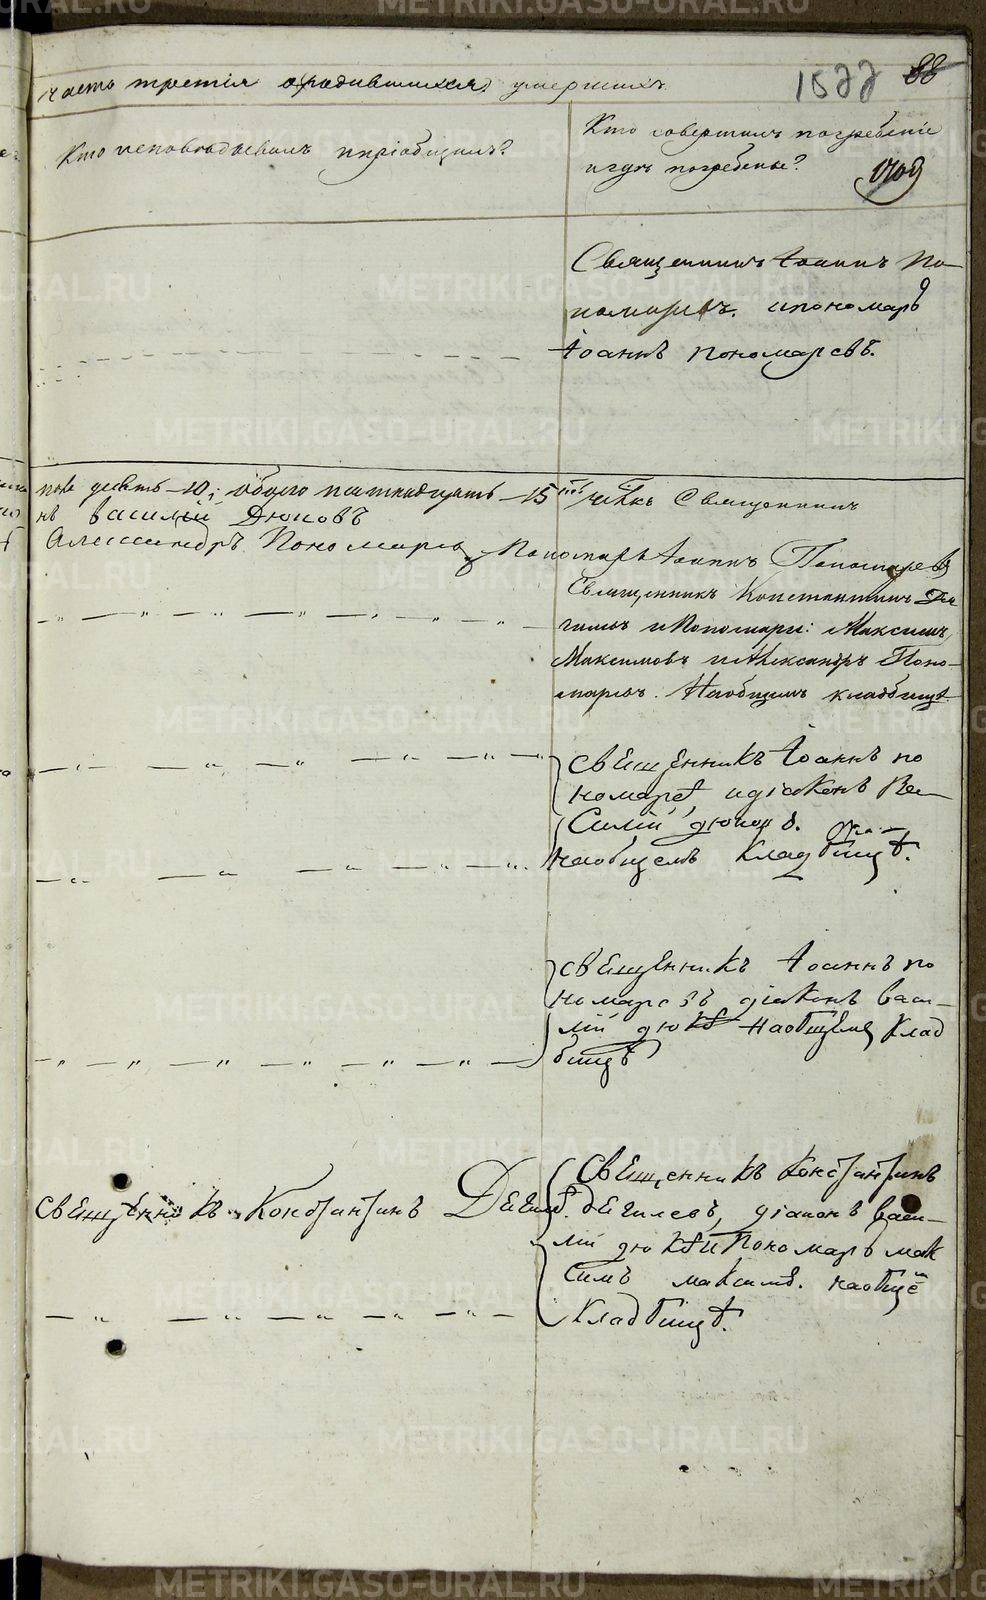 часть третія о родившихся умершихъ
1522 88
Кто исповѣдывалъ и пріобщалъ?
Кто совершилъ погребеніе
и гдѣ погребены?
Священникъ Іоаннъ По-
номаревъ. и пономарь
Іоаннъ Пономаревъ.
десять -10; обоего пятнадцать -15 Священникъ
Василій Дюковъ
Александръ Пономаревъ Пономарь Іоаннъ Пономаревъ
Священникъ Константинъ Де
гилевъ и Пономари: Максимъ
Максимовъ и Александръ Поно-
маревъ. На общемъ кладбищѣ
священникъ Іоаннъ по
номаревъ и діаконъ Ва-
силій дюковъ.
на общемъ кладбищѣ.
священникъ Іоаннъ по
номаревъ діаконъ васи-
лій дюковъ на общемъ клад
бищѣ
священникъ Константинъ Дегилевъ
священникъ Константинъ
дегилевъ, діаконъ васи-
лій дюковъ и Пономарь мак
симъ максимовъ. на общемъ
кладбищѣ.
METRIKI.GASO-URAL.RU